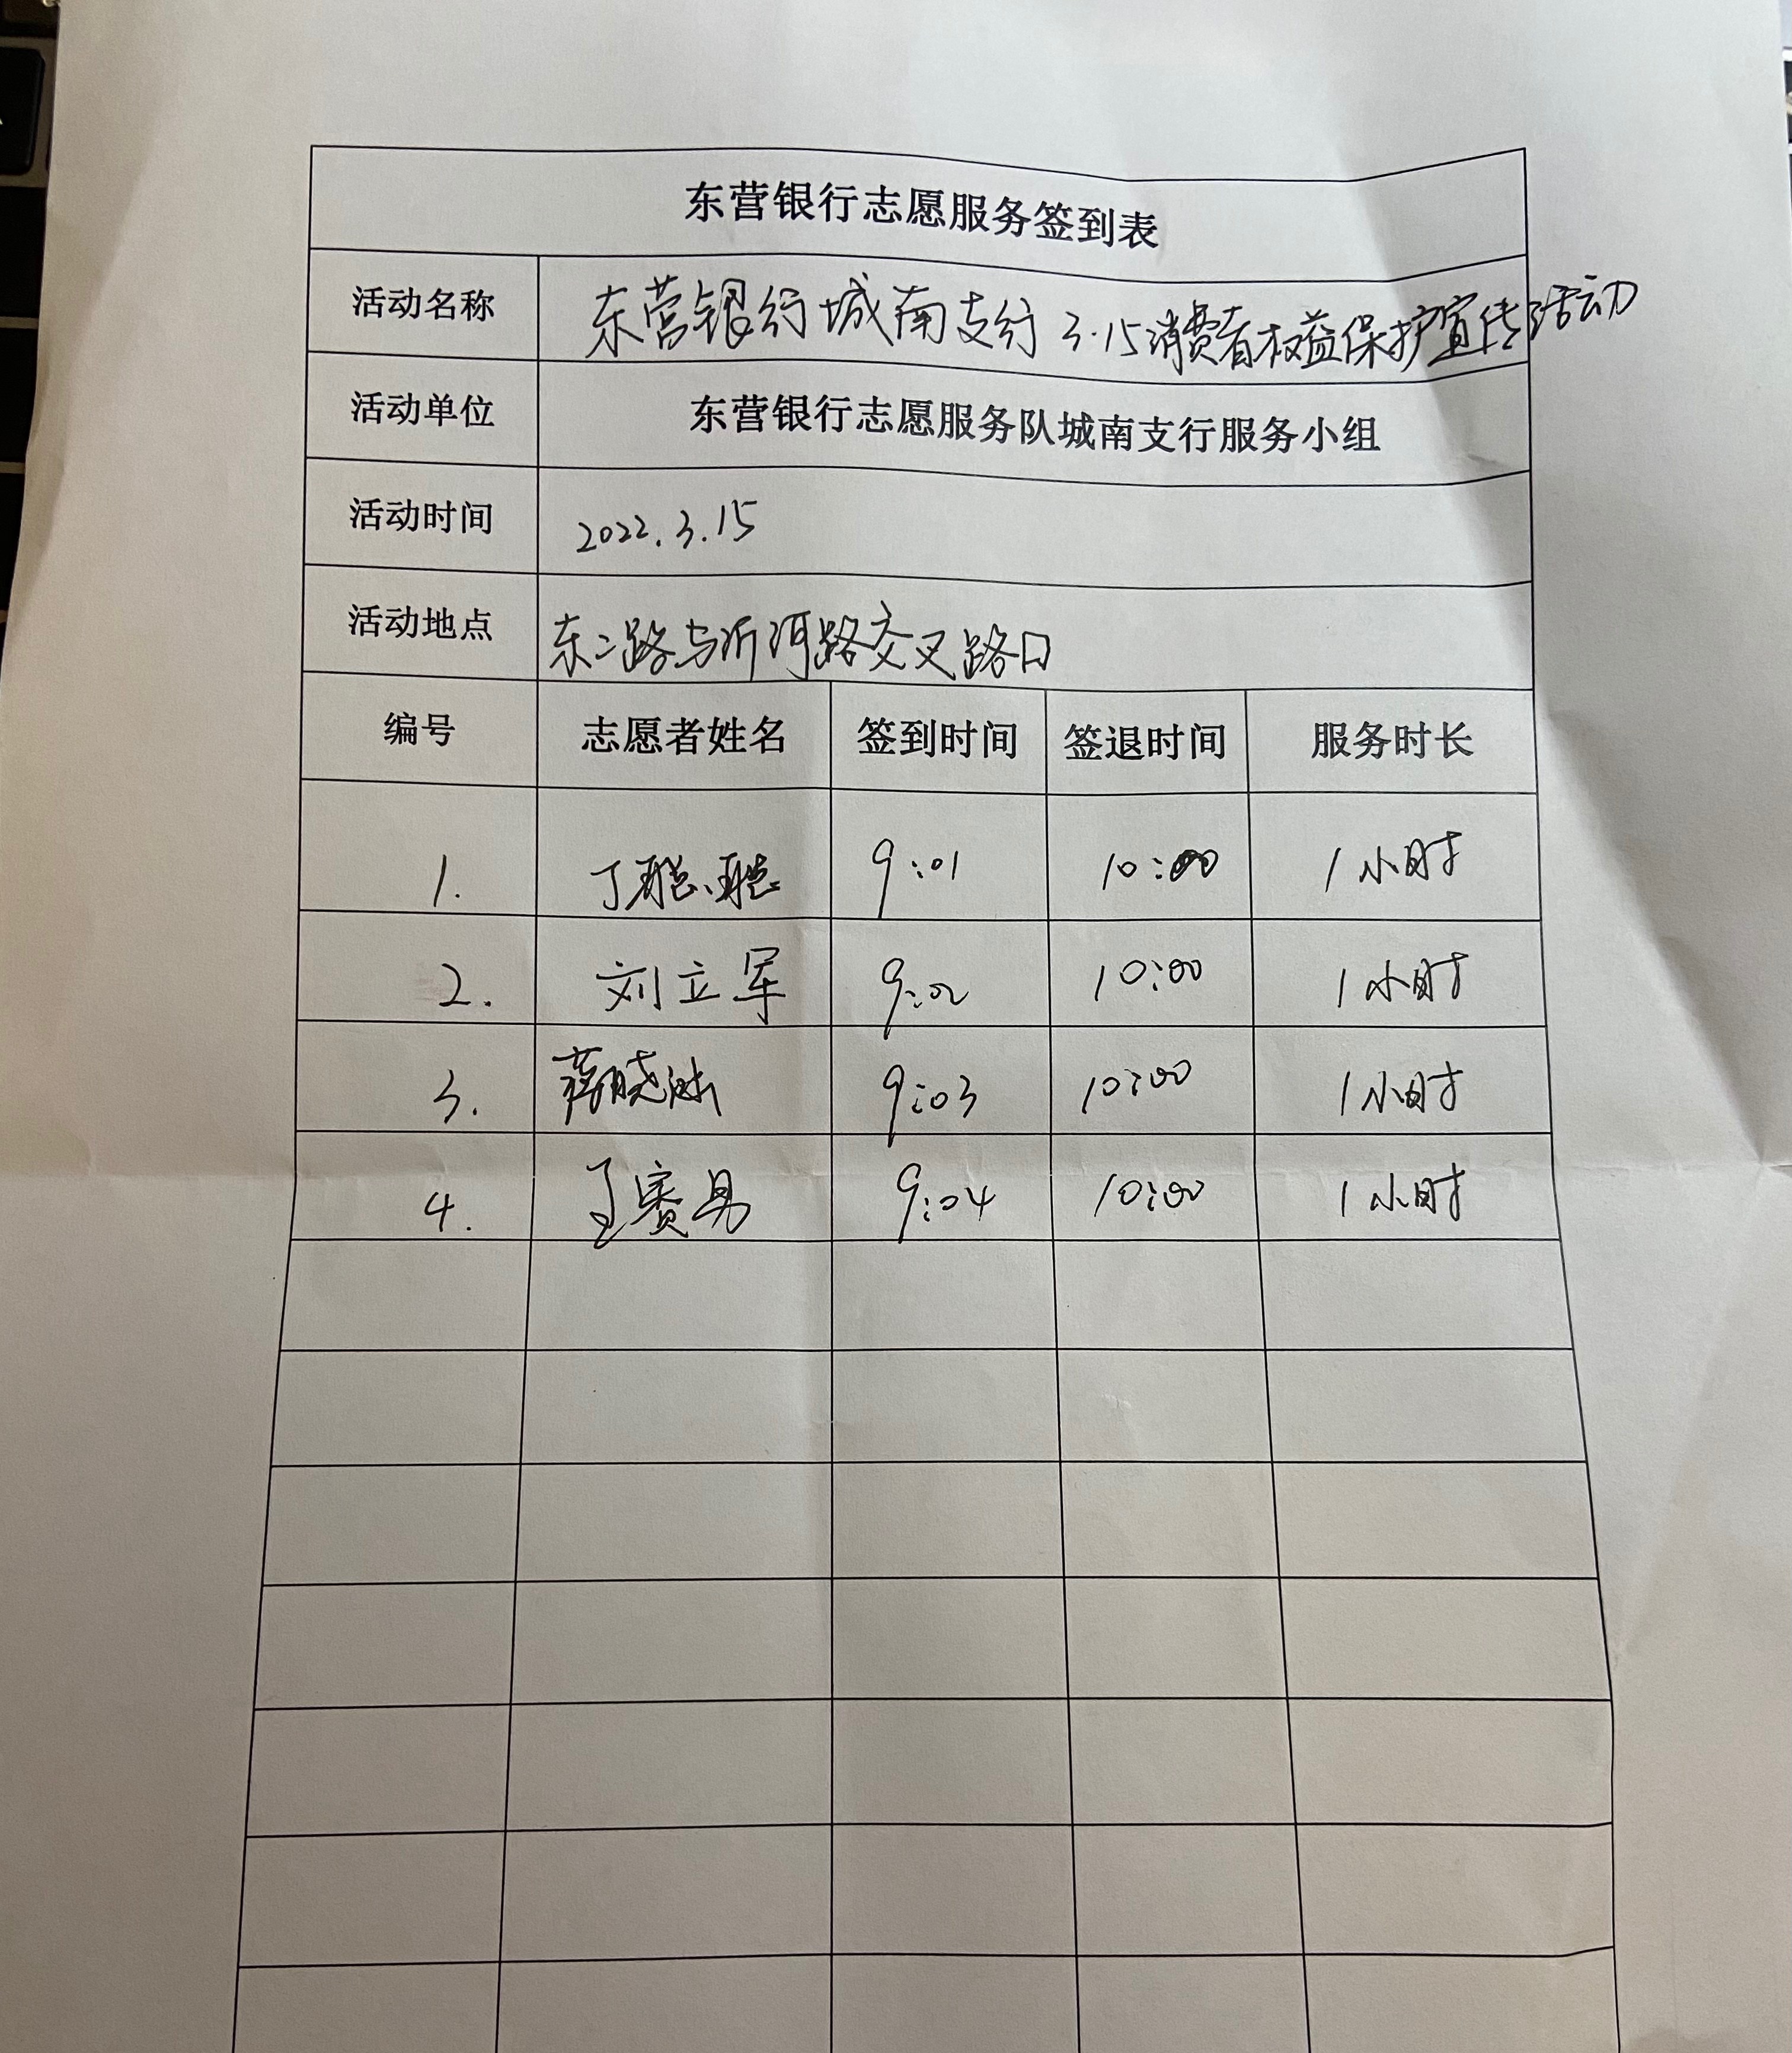 东营银行志愿服务签到表
活动名称 东营银行城南支行3·15消费者权益保护宣传活动
活动单位 东营银行志愿服务队城南支行服务小组
活动时间 2022.3.15
活动地点 东二路与沂河路交叉路口
编号 志愿者姓名 签到时间 签退时间 服务时长
1. 丁聪聪 9:01 10:00 1小时
2. 刘立军 9:02 10:00 1小时
3. 9:03 10:00 1小时
4. 9:04 10:00 1小时